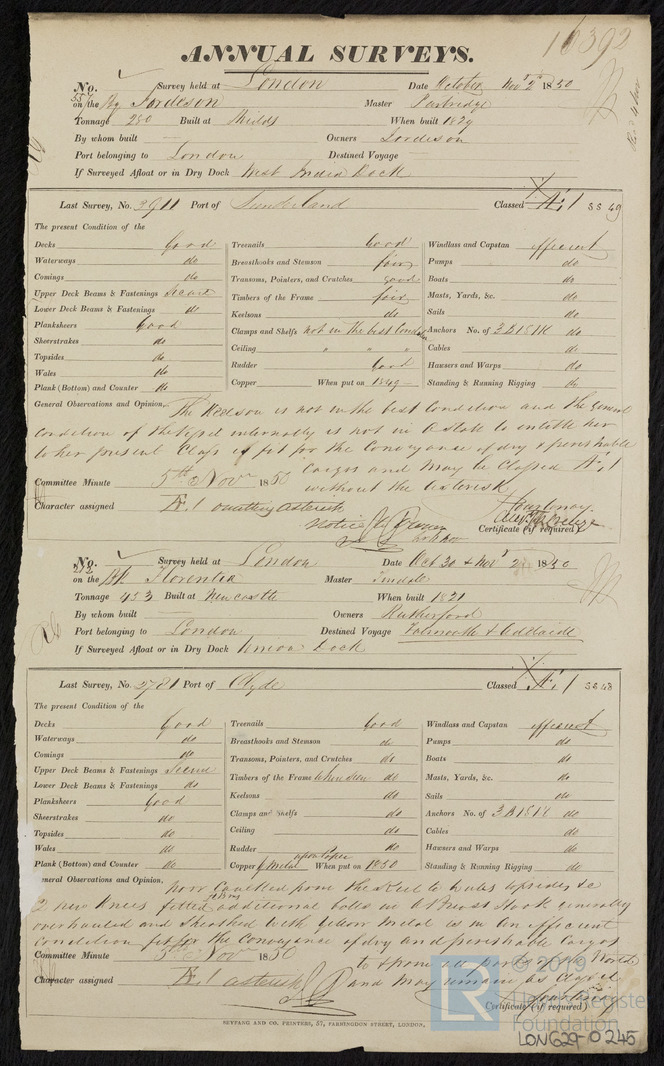 16392
ANNUAL SURVEYS.
No. 554 Survey held at London Date October Nov 2d 1850
on the Bg Jordeson Master Partridge
Tonnage 280 Built at Shields When built 1829
By whom built — Owners Jordeson
Port belonging to London Destined Voyage —
If Surveyed Afloat or in Dry Dock West India Dock
Last Survey, No. 3911 Port of Sunderland Classed Æ 1 SS 49
The present Condition of the
Decks Good Treenails Good Windlass and Capstan efficient
Waterways do Breasthooks and Stemson fair Pumps do
Comings do Transoms, Pointers, and Crutches good Boats do
Upper Deck Beams & Fastenings Secure Timbers of the Frame fair Masts, Yards, &c. do
Lower Deck Beams & Fastenings do Keelsons do Sails do
Planksheers Good Clamps and Shelfs not in the best Condition Anchors No. of 3B1S1K do
Sheerstrakes do Ceiling " " " Cables do
Topsides do Rudder Good Hawsers and Warps do
Wales do Copper When put on 1849 Standing & Running Rigging do
Plank (Bottom) and Counter do
General Observations and Opinion, The Keelson is not in the best Condition and the general
condition of the Vessel internally is not in a State to entitle her
to her present Class if fit for the Conveyance of dry & perishable
Cargos and may be Classed Æ 1
without the asterisk
Committee Minute 5th Novr 1850
Character assigned Æ 1 omitting asterisk
Notice
Courtenay
Certificate (if required)
No. 212 Survey held at London Date Oct 30 & Novr 2d 1850
on the Bk Florentia Master Tindale
Tonnage 453 Built at Newcastle When built 1821
By whom built — Owners Rutherford
Port belonging to London Destined Voyage Falmouth & Addlaide
If Surveyed Afloat or in Dry Dock Union Dock
Last Survey, No. 5781 Port of Clyde Classed Æ 1 SS 48
The present Condition of the
Decks Good Treenails Good Windlass and Capstan efficient
Waterways do Breasthooks and Stemson do Pumps do
Comings do Transoms, Pointers, and Crutches do Boats do
Upper Deck Beams & Fastenings Secure Timbers of the Frame when seen do Masts, Yards, &c. do
Lower Deck Beams & Fastenings do Keelsons do Sails do
Planksheers Good Clamps and Shelfs do Anchors No. of 3B1S1K do
Sheerstrakes do Ceiling do Cables do
Topsides do Rudder do Hawsers and Warps do
Wales do Copper Y Metal upon Copper When put on 1850 Standing & Running Rigging do
Plank (Bottom) and Counter do
General Observations and Opinion, now Caulked from the Keel to Wales topsides &c
2 new Knees fitted additional bolts in Breast Hook generally
overhauled and Sheathed with Yellow Metal is in an efficient
Condition fit for the Conveyance of dry and perishable Cargos
to & from all parts of the World
and may remain as classed
Committee Minute 5th Novr 1850
Character assigned Æ 1 asterisk
Courtenay
Certificate (if required)
SEYFANG AND CO. PRINTERS, 57, FARRINGDON STREET, LONDON.
LR
© 2019
Lloyd's Register
Foundation
LON629-0245